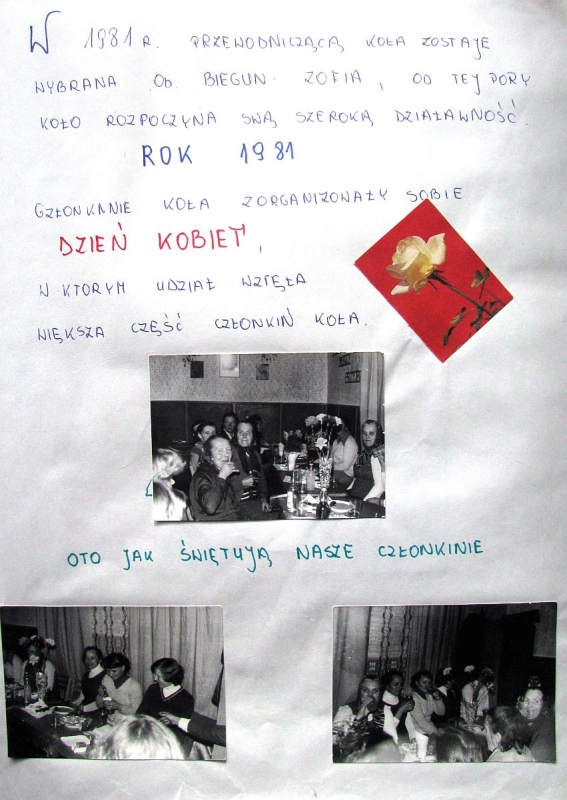 W 1981 R. PRZEWODNICZĄCĄ KOŁA ZOSTAJE
WYBRANA OB. BIEGUN ZOFIA, OD TEJ PORY
KOŁO ROZPOCZYNA SWĄ SZEROKĄ DZIAŁAWNOŚĆ.
ROK 1981
CZŁONKINIE KOŁA ZORGANIZOWAŁY SOBIE
DZIEŃ KOBIET,
W KTORYM UDZIAŁ WZIĘŁA
WIĘKSZA CZĘŚĆ CZŁONKIŃ KOŁA.
OTO JAK ŚWIĘTUJĄ NASZE CZŁONKINIE